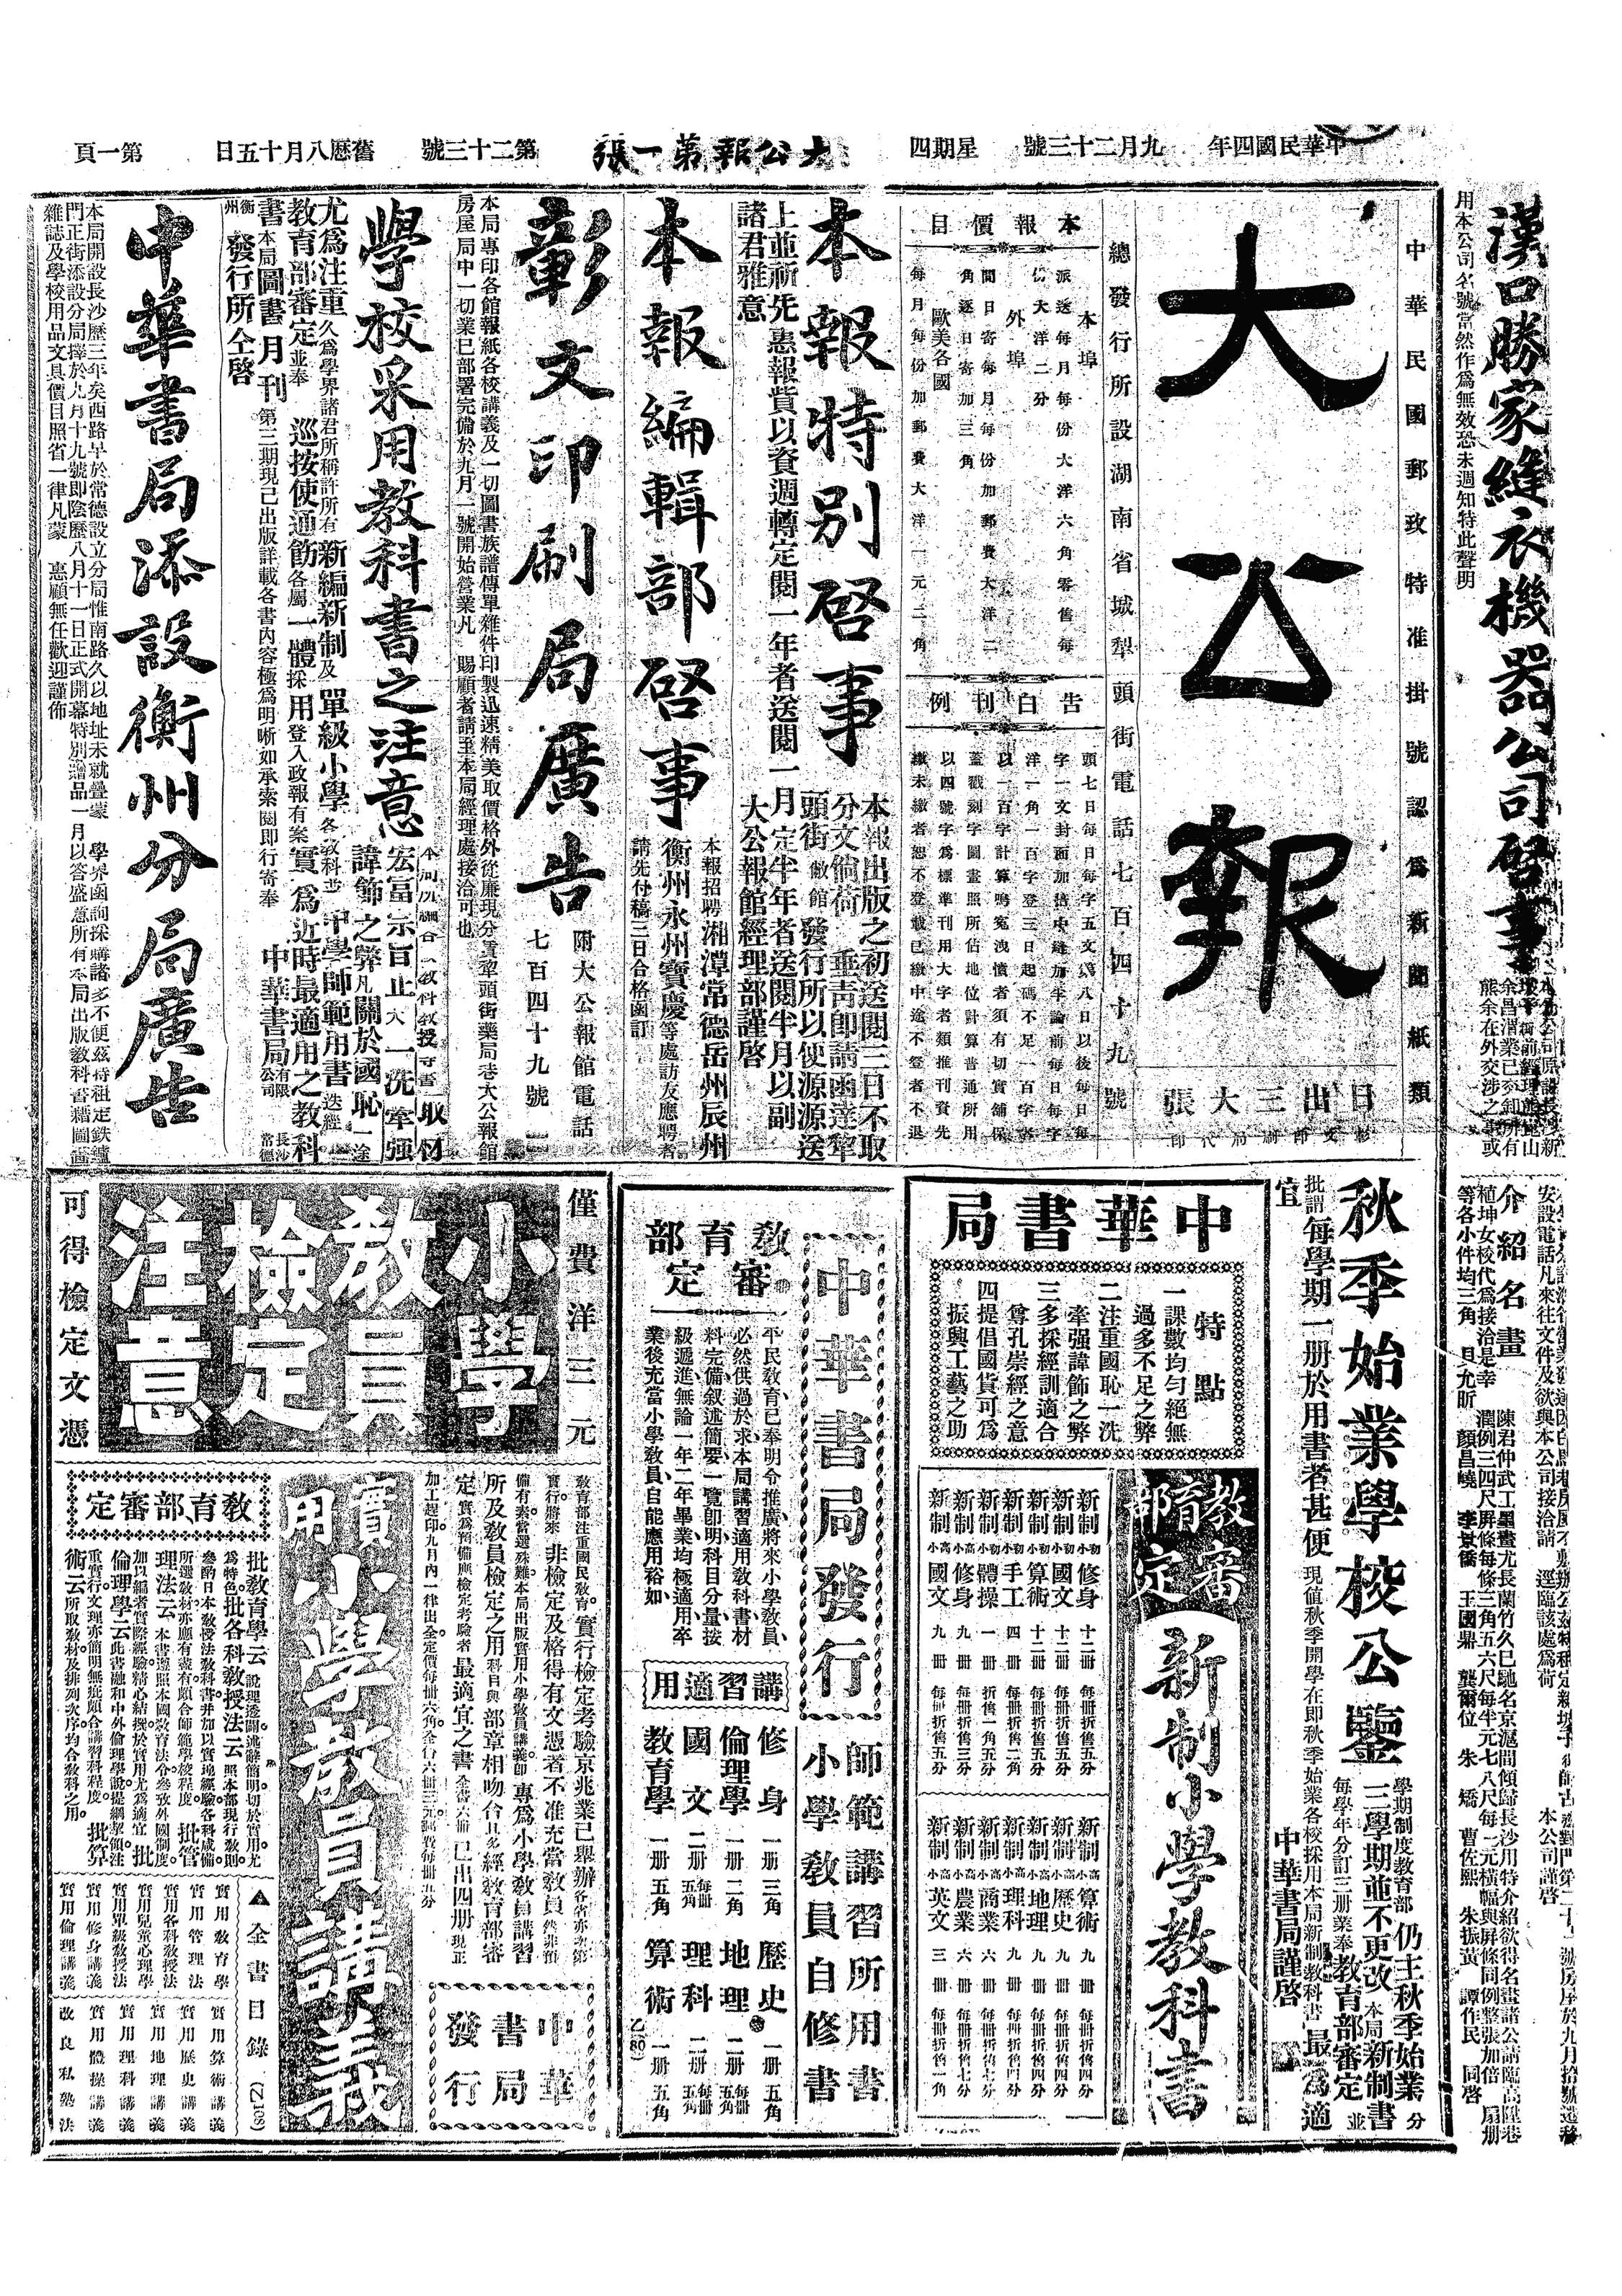 中華民國四年
九月二十三號
星期四
大公報第一張
第二十三號
舊曆八月十五日
第一頁
漢口勝家縫衣機器公司啓事
用本公司名號當然作為無效恐未週知特此聲明
中華民國郵政特准掛號認為新聞紙類
大公報
日出三大張
彰文印刷局代印
總發行所設湖南省城犁頭街電話七百四十九號
本報價目
本埠
派送每月每份大洋六角零售每
份大洋二分
外埠
間日寄每月每份加郵費大洋二
角逐日寄加三角
歐美各國
每月每份加郵費大洋一元二角
告白刊例
頭七日每日每字五文第八日以後每日每
字一文封面加倍中縫加半論前每日每字
洋一角一百字登三日起碼不足一百字者
以一百字計算鳴冤洩憤者須有切實舖保
蓋戳刻字圖畫照所佔地位計算普通所用
以四號字為標準刊用大字者類推刊資先
繳未繳者恕不登載已繳中途不登者不退
本報特別啓事
本報出版之初送閱三日不取
分文倘荷 垂青卽請函達犂
頭街敝館發行所以便源源送
上並祈先惠報貲以資週轉定閱一年者送閱一月定半年者送閱半月以副
諸君雅意
大公報館經理部謹啓
本報編輯部啓事
本報招聘湘潭常德岳州辰州
衡州永州寶慶等處訪友應聘者
請先付稿三日合格函訂
彰文印刷局廣告
附大公報館電話
七百四十九號
本局專印各館報紙各校講義及一切圖書族譜傳單雜件印製迅速精美取價格外從廉現分賃犂頭街藥局巷大公報館
房屋局中一切業已部署完備於九月一號開始營業凡 賜顧者請至本局經理處接洽可也
學校采用教科書之注意
取材
宏富宗旨正大一洗牽强
諱飾之弊凡關於國恥一途
尤為注重久為學界諸君所稱許所有新編新制及單級小學各教科書中學師範用書迭經
教育部審定並奉 巡按使通飭各屬一體採用登入政報有案實為近時最適用之教科
書本局圖書月刊第三期現已出版詳載各書內容極為明晰如承索閱即行寄奉
中華書局有限公司
長沙
常德
衡州
發行所仝啓
中華書局添設衡州分局廣告
本局開設長沙歷三年矣西路早於常德設立分局惟南路久以地址未就疊蒙 學界函詢採購諸多不便茲特租定鉄爐
門正街添設分局擇於九月十九號即陰歷八月十一日正式開幕特別贈品一月以答盛意所有本局出版教科書籍圖畫
雜誌及學校用品文具價目照省一律凡蒙 惠顧無任歡迎謹佈
介紹名畫
陳君仲武工墨畫尤長蘭竹久已馳名京滬間傾歸長沙用特介紹欲得名畫諸公請臨高陞巷
植坤女校代為接洽是幸 潤例三四尺屏條每條三角五六尺每半元七八尺每一元橫幅與屏條同例整張加倍 扇册
等各小件均三角 貝允昕 顏昌嶢 李景僑 王國鼎 龔爾位 朱矯 曹佐熙 朱振黃 譚作民 同啓
本公司謹啓
秋季始業學校公鑒
學期制度教育部仍主秋季始業分
三學期並不更改本局新制書
每學年分訂三册業奉教育部審定並
批謂每學期一册於用書者甚便現值秋季開學在即秋季始業各校採用本局新制教科書最為適
宜
中華書局謹啓
中華書局
特點
一課數均勻絕無
過多不足之弊
二注重國恥一洗
牽强諱飾之弊
三多採經訓適合
尊孔崇經之意
四提倡國貨可為
振興工藝之助
教育部審定
新制小學教科書
新制初小修身 十二册 每册折售五分
新制初小國文 十二册 每册折售五分
新制初小算術 十二册 每册折售五分
新制初小手工 四册 每册折售二角
新制初小體操 一册 折售一角五分
新制高小修身 九册 每册折售三分
新制高小國文 九册 每册折售五分
新制高小算術 九册 每册折售四分
新制高小歷史 九册 每册折售四分
新制高小地理 九册 每册折售四分
新制高小理科 九册 每册折售四分
新制高小商業 六册 每册折售七分
新制高小農業 六册 每册折售七分
新制高小英文 三册 每册折售一角
中華書局發行
師範講習所用書
小學教員自修書
教育部審定
平民教育已奉明令推廣將來小學教員
必然供過於求本局講習適用教科書材
料完備叙述簡要一覽卽明科目分量按
級遞進無論一年二年畢業均極適用卒
業後充當小學教員自能應用裕如
講習適用
修身 一册 三角
倫理學 一册 二角
國文 二册 每册五角
教育學 一册 五角
歷史 一册 五角
地理 二册 每册五角
理科 二册 每册五角
算術 一册 五角
僅費洋三元
小學教員檢定注意
可得檢定文憑
教育部注重國民教育。實行檢定考驗京兆業已舉辦各省亦次第
實行將來非檢定及格得有文憑者不准充當教員然非預
備有素當選殊難本局出版實用小學教員講義卽專為小學教員講習
所及教員檢定之用科目與部章相吻合且多經教育部審
定實為預備應檢定考驗者最適宜之書全書六册已出四册現正
加工趕印九月內一律出全定價每册六角全台六册三元郵費每册五分
實用小學教員講義
中華書局發行
教育部審定
批教育學云說理透闢述辭簡明切於實用尤
為特色。批各科教授法云照本部現行教則
參酌日本教授法教科書并加以實地經驗各科咸備
所選教材亦應有盡有頗合師範學校程度 批管
理法云本書遵照本國教育法令參攷外國制度
加以編者實際經驗精心結撰於實用尤為適宜 批
倫理學云此書融和中外倫理學說提綱挈領注
重實行文理亦簡明無疵頗合講習科程度 批算
術云所取教材及排列次序均合教科之用
全書目錄（乙108）
實用教育學
實用管理法
實用各科教授法
實用兒童心理學
實用單級教授法
實用修身講義
實用倫理講義
實用算術講義
實用歷史講義
實用地理講義
實用理科講義
實用體操講義
改良私塾法